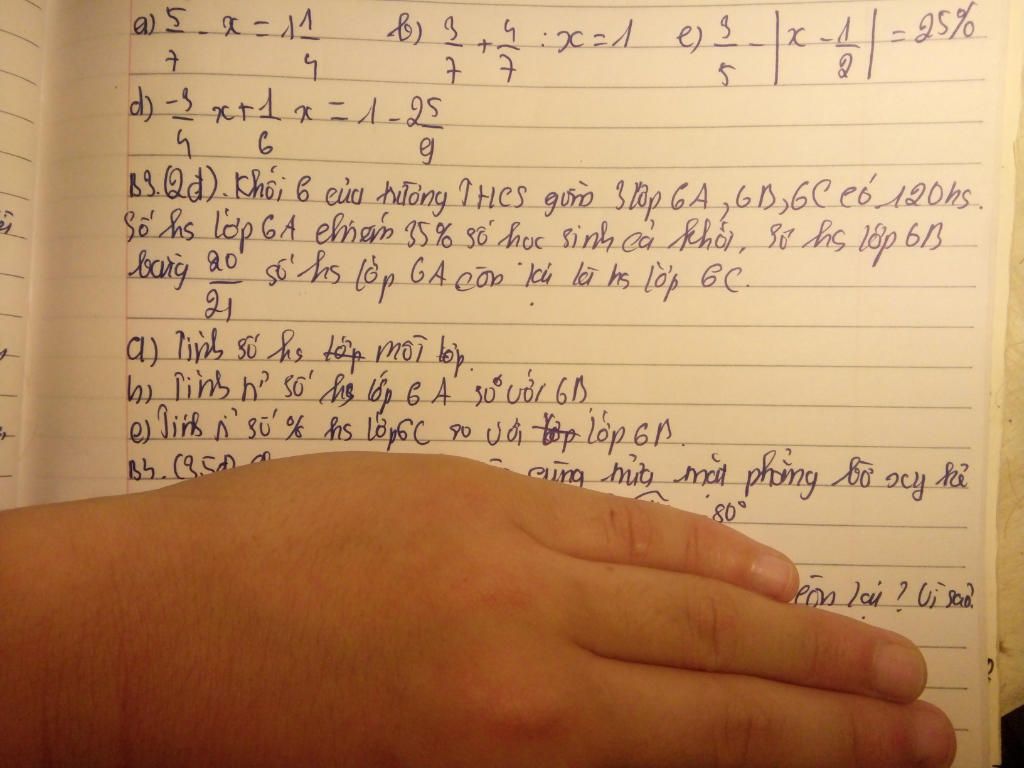 a) 5/7 - x = 1 1/4 b) 3/7 + 4/7 : x = 1 c) 3/5 - | x - 1/2 | = 25%
d) -3/4 x + 1/6 x = 1 - 25/9
B3. (2đ). Khối 6 của trường THCS gồm 3 lớp 6A, 6B, 6C có 120 hs.
Số hs lớp 6A chiếm 35% số học sinh cả khối, số hs lớp 6B
bằng 20/21 số hs lớp 6A còn lại là hs lớp 6C.
a) Tính số hs mỗi lớp.
b) Tính tỉ số hs lớp 6A so với 6B
c) Tính tỉ số % hs lớp 6C so với lớp 6B.
cùng nửa mặt phẳng bờ xy kẻ
80°
còn lại? Vì sao.